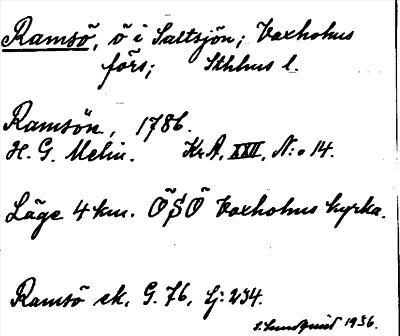 Ramsö, ö i Saltsjön; Vaxholms
förs; Sthlms l.
Ramsön, 1786.
H. G. Melin. Kr.A. XXII, N:o 14.
Läge 4 km. ÖSÖ Vaxholms kyrka.
Ramsö sk. G. 76, Lj: 234.
S. Lundquist 1936.